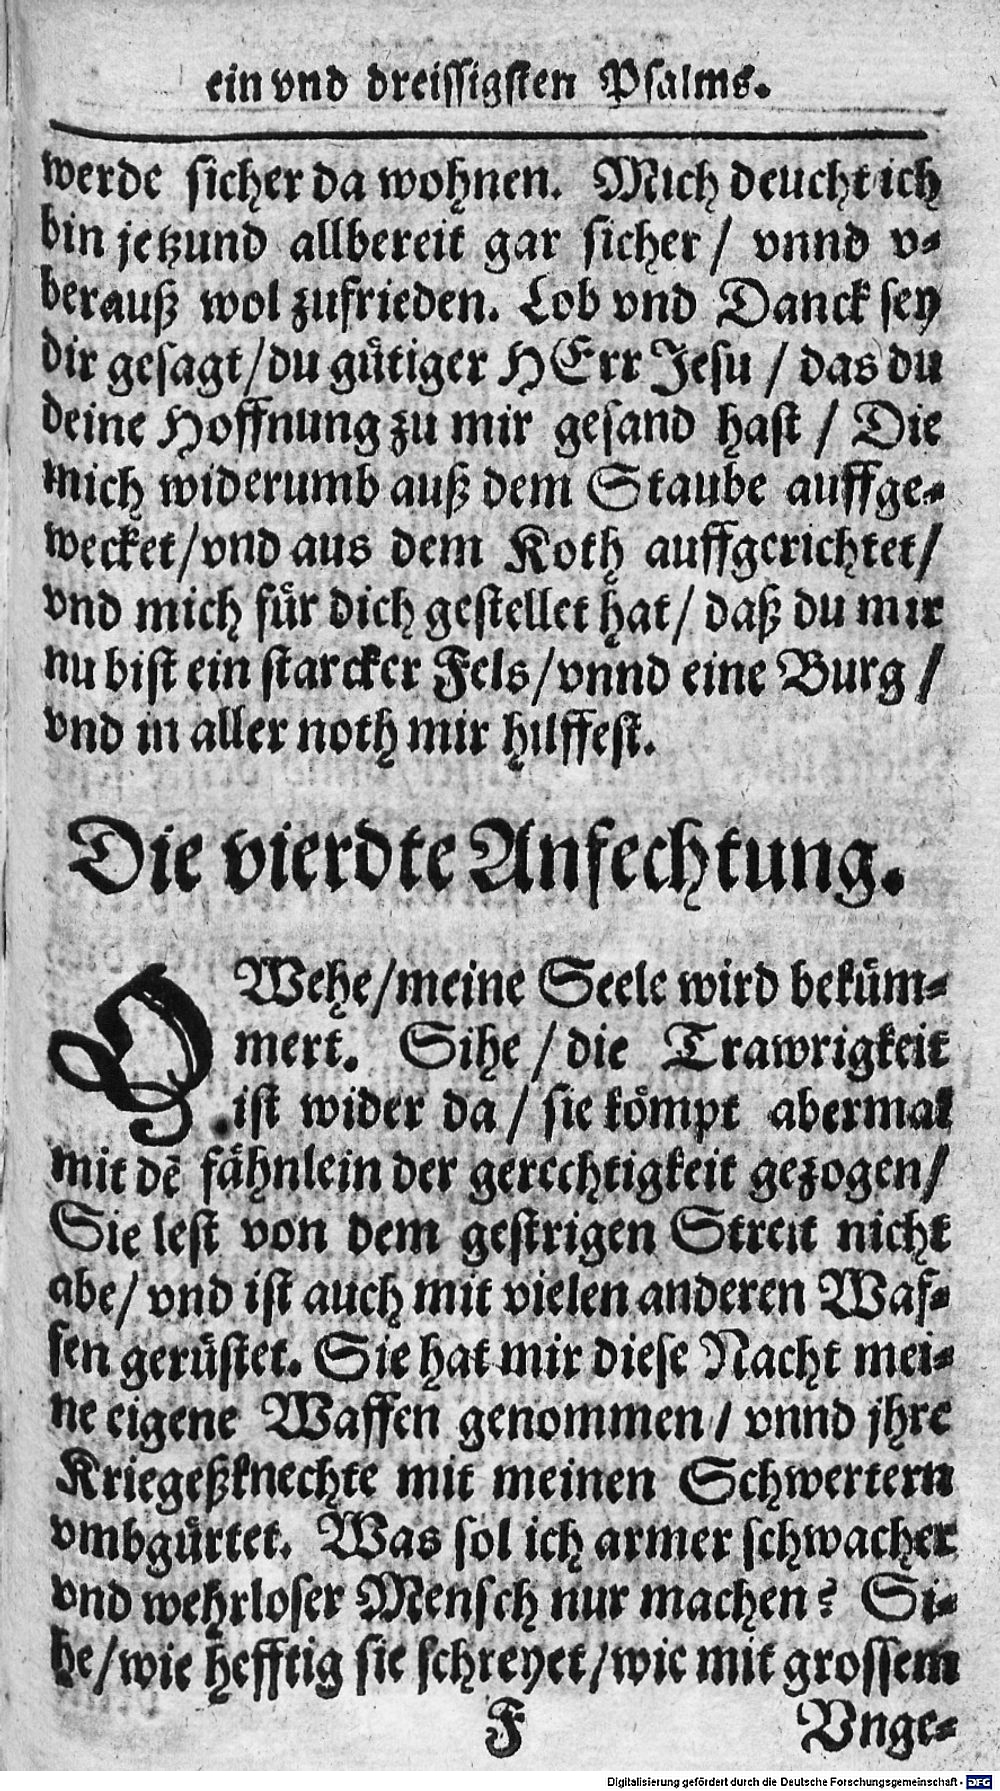 ein vnd dreissigsten Psalms.
werde sicher da wohnen. Mich deucht ich
bin jetzund allbereit gar sicher / vnnd v-
berauß wol zufrieden. Lob vnd Danck sey
dir gesagt / du gütiger HErr Jesu / das du
deine Hoffnung zu mir gesand hast / Die
mich widerumb auß dem Staube auffge-
wecket / vnd aus dem Koth auffgerichtet /
vnd mich für dich gestellet hat / daß du mir
nu bist ein starcker Fels / vnnd eine Burg /
vnd in aller noth mir hilffest.
Die vierdte Anfechtung.
O Wehe / meine Seele wird beküm-
mert. Sihe / die Trawrigkeit
ist wider da / sie kömpt abermal
mit dē fähnlein der gerechtigkeit gezogen /
Sie lest von dem gestrigen Streit nicht
abe / vnd ist auch mit vielen anderen Waf-
fen gerüstet. Sie hat mir diese Nacht mei-
ne eigene Waffen genommen / vnnd jhre
Kriegeßknechte mit meinen Schwertern
vmbgürtet. Was sol ich armer schwacher
vnd wehrloser Mensch nur machen? Si-
he / wie hefftig sie schreyet / wie mit grossem
F Vnge-
Digitalisierung gefördert durch die Deutsche Forschungsgemeinschaft - DFG